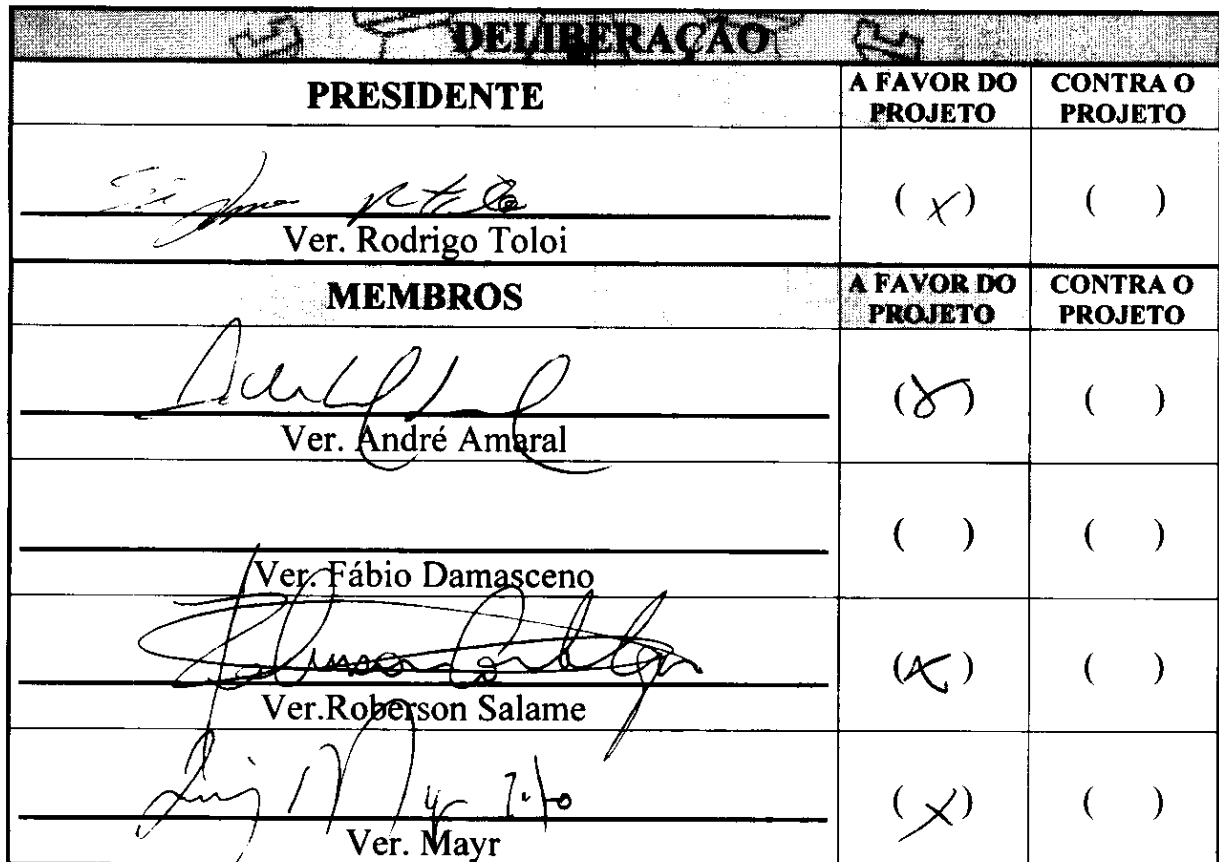 DELIBERAÇÃO
PRESIDENTE
A FAVOR DO PROJETO
CONTRA O PROJETO
( x ) ( )
Ver. Rodrigo Toloi
MEMBROS
A FAVOR DO PROJETO
CONTRA O PROJETO
( x ) ( )
Ver. André Amaral
( ) ( )
Ver. Fábio Damasceno
( x ) ( )
Ver.Roberson Salame
( x ) ( )
Ver. Mayr